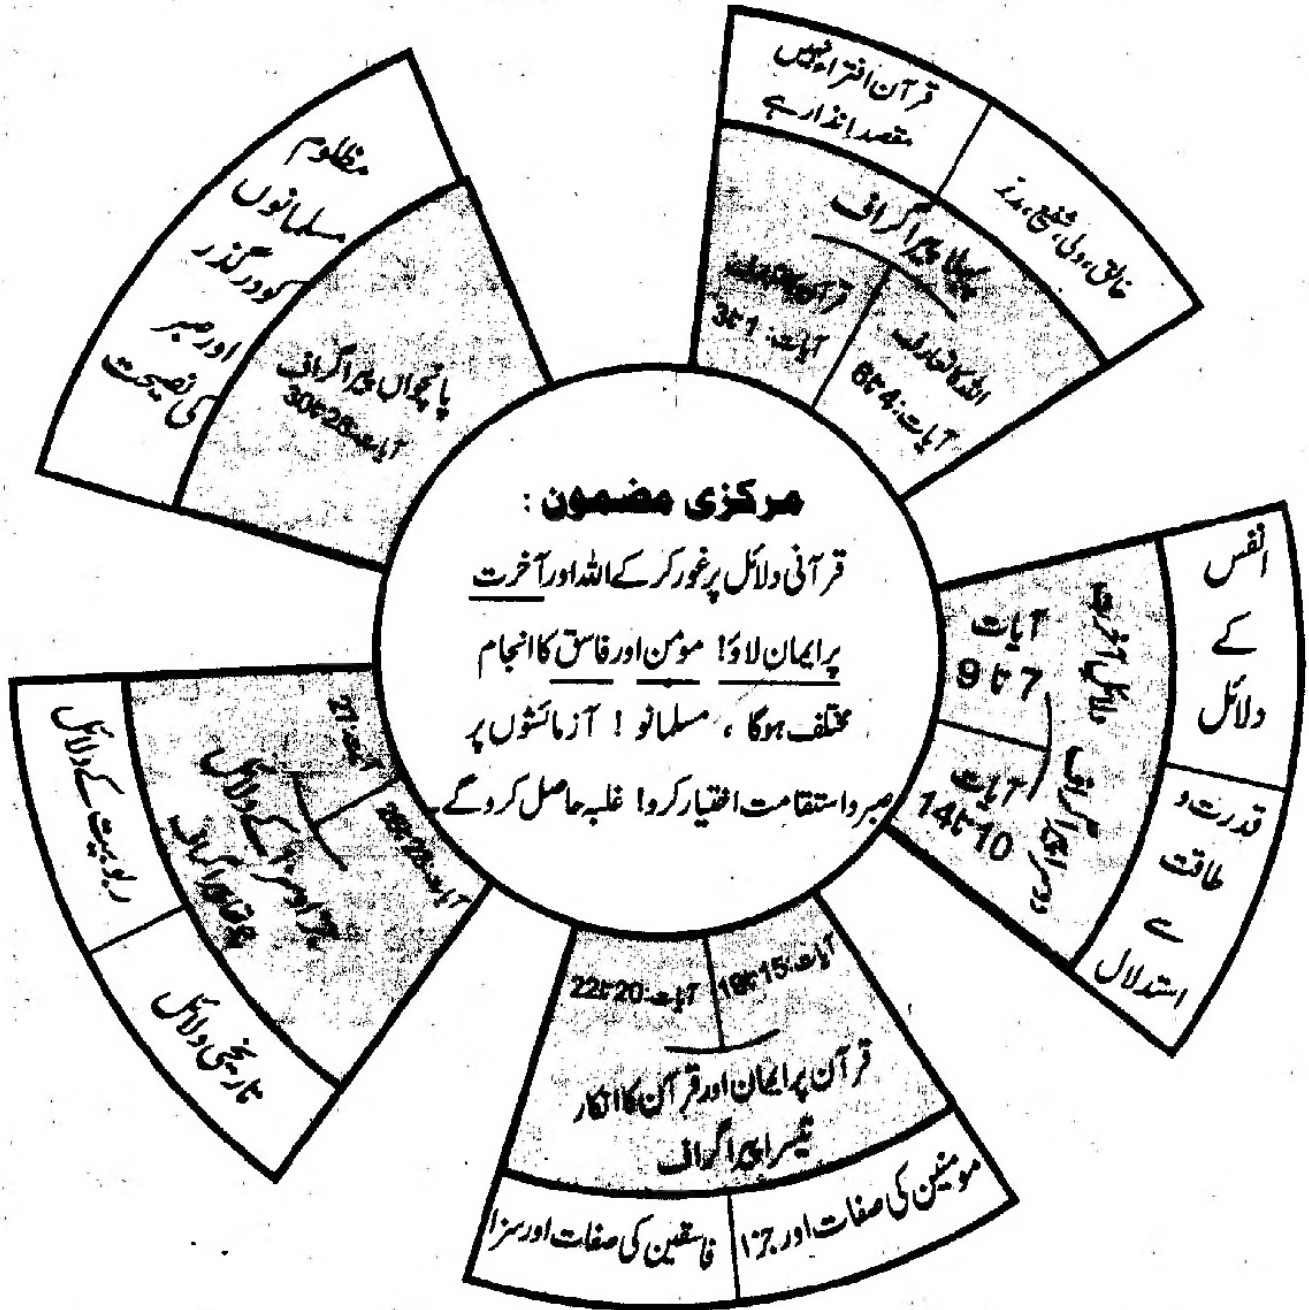 مرکزی مضمون :
قرآنی دلائل پر غور کر کے اللہ اور آخرت
پر ایمان لاؤ! مومن اور فاسق کا انجام
مختلف ہوگا ، مسلمانو ! آزمائشوں پر
صبر و استقامت اختیار کرو! غلبہ حاصل کرو گے۔
قرآن افتراء نہیں
مقصد انذار ہے
خالق، ولی، شفیع، مدبّر
پہلا پیراگراف
قرآن کا تعارف
آیات: 1 تا 3
اللہ کا تعارف
آیات: 4 تا 6
انفس
کے
دلائل
قدرت و
طاقت
سے
استدلال
دلائل آخرت
دوسرا پیراگراف
آیات
7 تا 9
آیات
10 تا 14
آیات: 15 تا 19
آیات: 20 تا 22
قرآن پر ایمان اور قرآن کا انکار
تیسرا پیراگراف
مومنین کی صفات اور جزا
فاسقین کی صفات اور سزا
آیات: 23 تا 26
آیت: 27
جزا و سزا کے دلائل
چوتھا پیراگراف
ربوبیت کے دلائل
تاریخی دلائل
پانچواں پیراگراف
آیات: 28 تا 30
مظلوم
مسلمانوں
کو درگذر
اور صبر
کی نصیحت